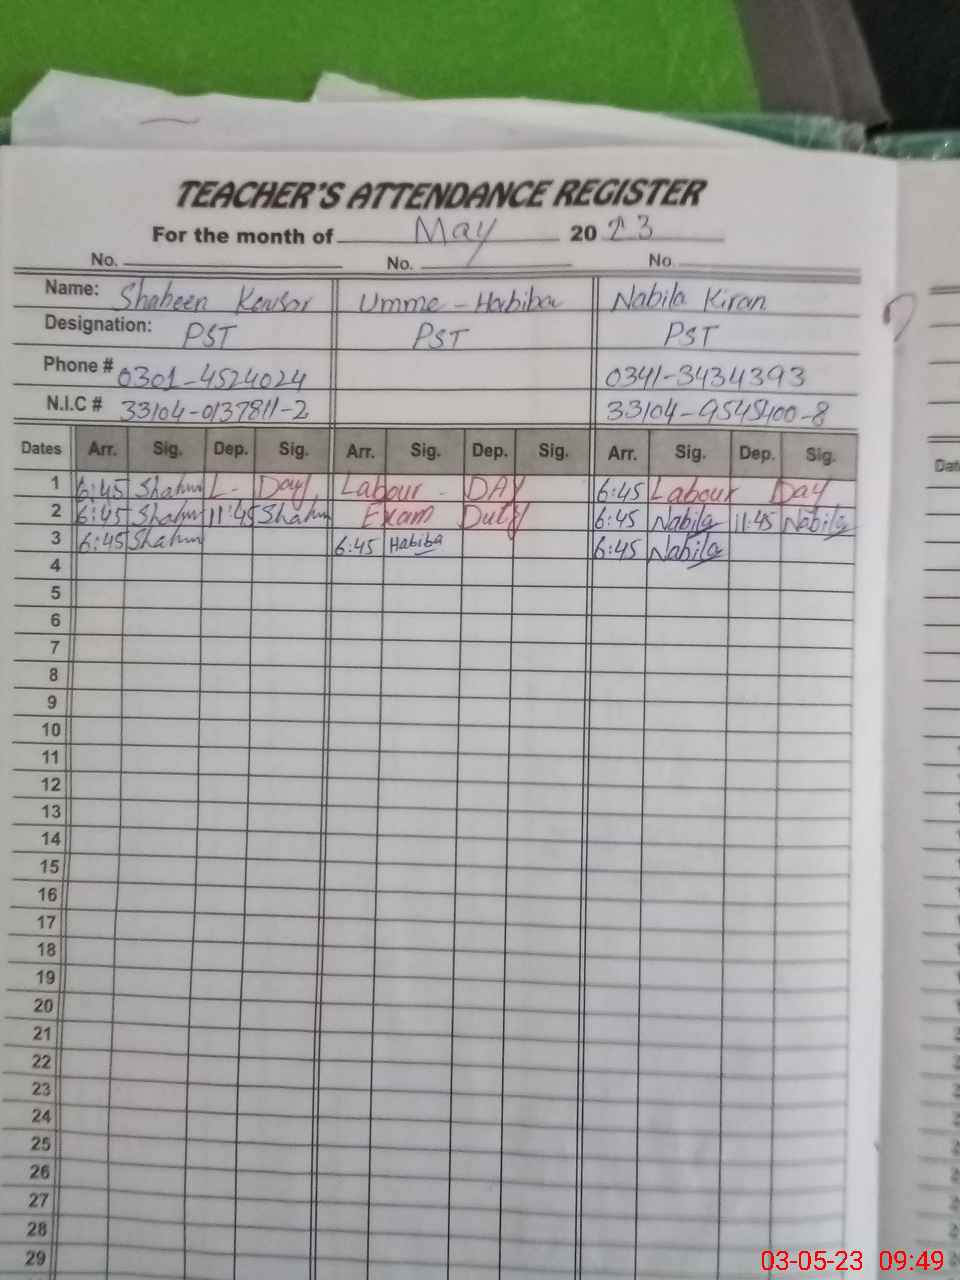 TEACHER'S ATTENDANCE REGISTER
For the month of May 2023
No. No. No.
Name: Shaheen Kousor Umme-Habiba Nabila Kiran
Designation: PST PST PST
Phone # 0301-4524024 0341-3434393
N.I.C # 33104-0137811-2 33104-9545400-8
Dates Arr. Sig. Dep. Sig. Arr. Sig. Dep. Sig. Arr. Sig. Dep. Sig.
1 6:45 Shahn L- Day Labour - DAY 6:45 Labour Day
2 6:45 Shahn 11:45 Shahn Exam Duty 6:45 Nabila 11:45 Nabila
3 6:45 Shahn 6:45 Habiba 6:45 Nabila
4
5
6
7
8
9
10
11
12
13
14
15
16
17
18
19
20
21
22
23
24
25
26
27
28
29
03-05-23 09:49